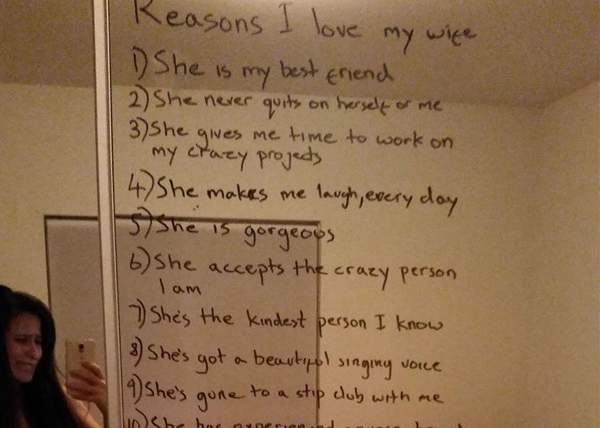 Reasons I love my wife
1) She is my best friend
2) She never quits on herself or me
3) She gives me time to work on
my crazy projects
4) She makes me laugh, every day
5) She is gorgeous
6) She accepts the crazy person
I am
7) She's the kindest person I know
8) She's got a beautiful singing voice
9) She's gone to a stip club with me
10) She has